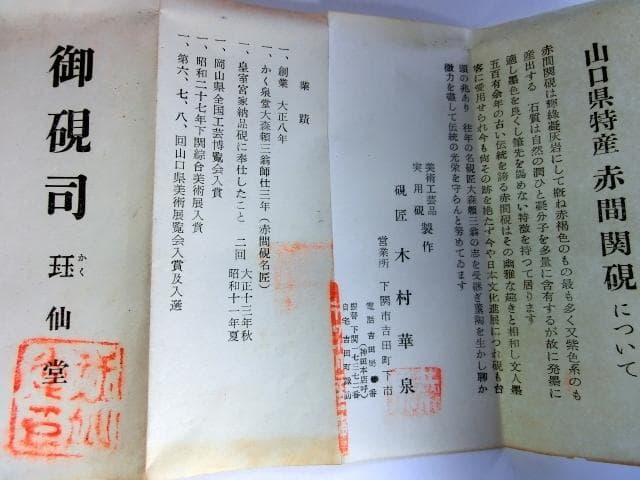 山口県特産 赤間関硯について
赤間関硯は輝緑凝灰岩にして概ね赤褐色のもの最も多く又紫色系のも
産出する 石質は自然の潤ひと凝分子を多量に含有するが故に発墨に
適し墨色を良くし筆先を傷めない特徴を持つて居ります
五百有余年の古い伝統を誇る赤間関硯はその幽雅な趣きと相和し文人墨
客に愛用せられ今も尚その跡を絶たず今や日本文化進展につれ硯も台
頭の兆あり 往年の名硯匠大森頼三翁の志を受継ぎ薫陶を生かし聊か
微力を尽して伝統の光栄を守らんと努めてゐます
美術工芸品
実用硯 製作
硯匠 木村華泉
営業所 下関市吉田町下市
電話吉田局
(神田本店呼)
振替下関一七一七二番
自宅 吉田町
業蹟
一、創業 大正八年
一、かく泉堂大森頼三翁師仕三年(赤間硯名匠)
一、皇室宮家納品硯に奉仕したこと 二回 大正十三年秋
昭和十一年夏
一、岡山県全国工芸博覧会入賞
一、昭和二十七年下関綜合美術展入賞
一、第六、七、八、回山口県美術展覧会入賞及入選
御硯司 珏仙堂
かく